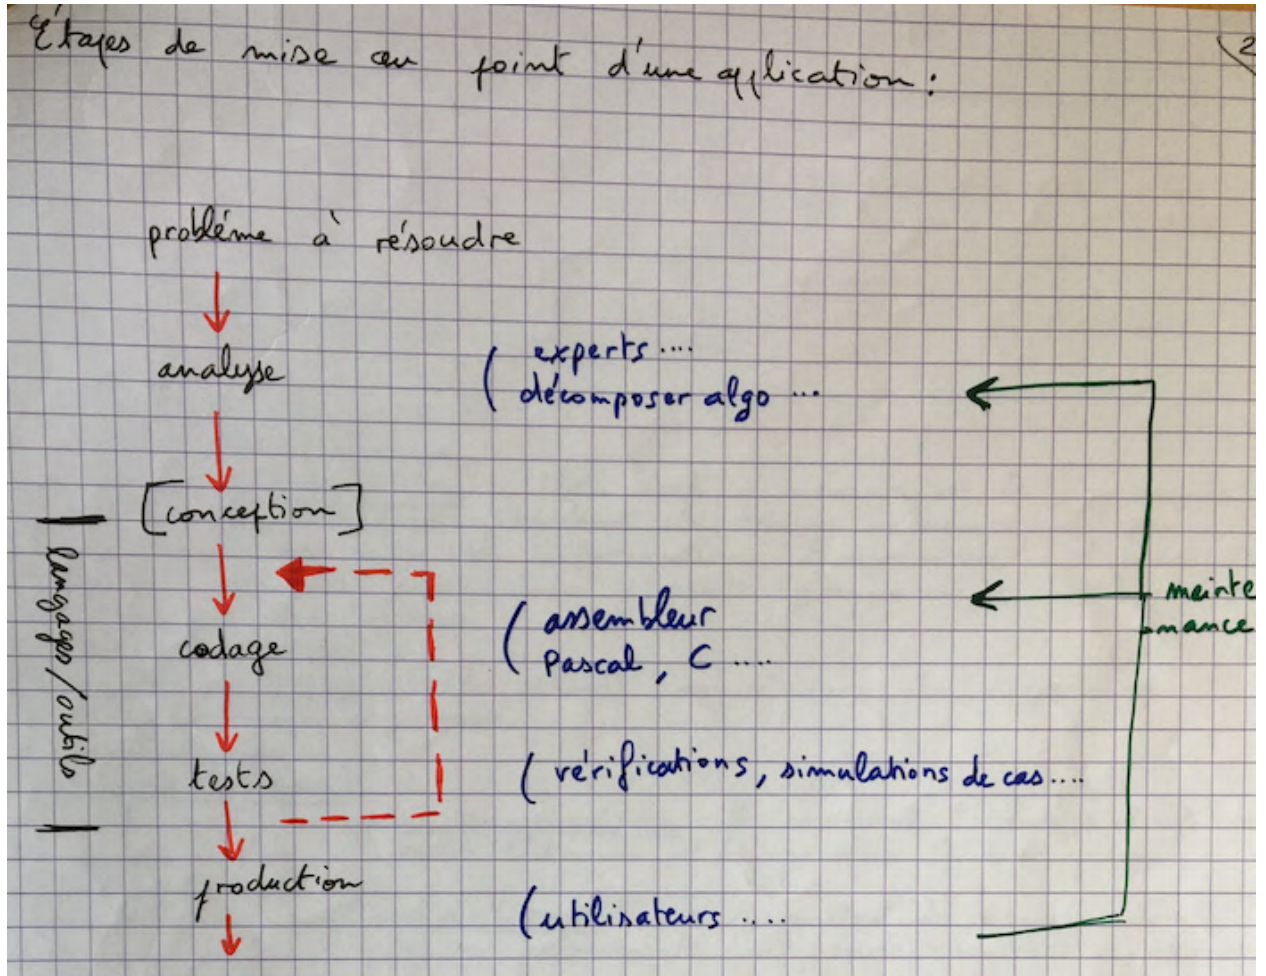 Étapes de mise au point d'une application :
2
problème à résoudre
analyse
( experts ....
décomposer algo ...
[conception]
langages/outils
codage
( assembleur
Pascal, C ....
mainte
nance
tests
( vérifications, simulations de cas....
production
( utilisateurs ....